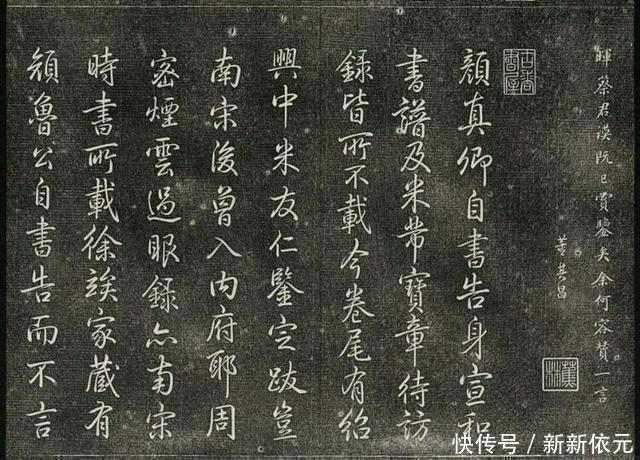 暉蔡君謨既已賞鑒矣余何容贊一言
董其昌
顏真卿自書告身宣和
書譜及米芾寶章待訪
錄皆所不載今卷尾有紹
興中米友仁鑒定跋豈
南宋後曾入內府耶周
密煙雲過眼錄亦南宋
時書所載徐誒家藏有
顏魯公自書告而不言
快传号/新新依元